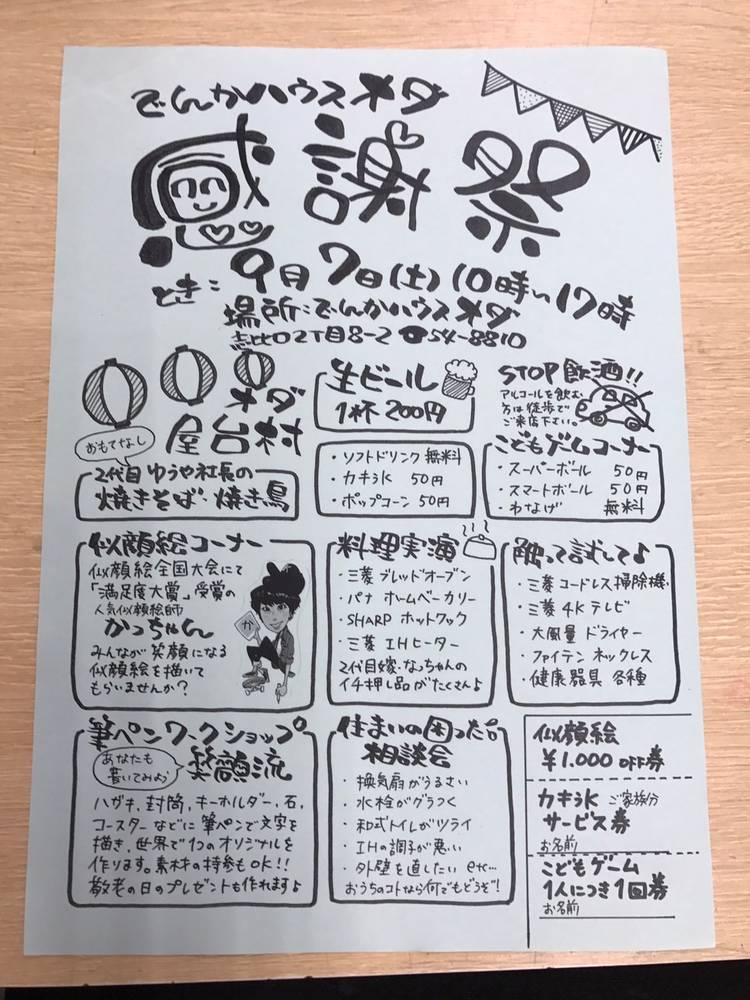 でんかハウスオダ
感謝祭
とき:9月7日(土)10時〜17時
場所:でんかハウスオダ
志比口2丁目8-2 ☎54-8810
オダ
屋台村
おもてなし
2代目ゆうや社長の
焼きそば・焼き鳥
生ビール
1杯 200円
・ソフトドリンク 無料
・カキ氷 50円
・ポップコーン 50円
STOP飲酒!!
アルコールを飲む
方は徒歩で
ご来店下さい。
こどもゲームコーナー
・スーパーボール 50円
・スマートボール 50円
・わなげ 無料
似顔絵コーナー
似顔絵全国大会にて
「満足度大賞」受賞の
人気似顔絵師
かっちゃん
みんなが笑顔になる
似顔絵を描いて
もらいませんか?
か
料理実演
・三菱ブレッドオーブン
・パナ ホームベーカリー
・SHARP ホットクック
・三菱 IHヒーター
2代目嫁・なっちゃんの
イチ押し品がたくさん♪
触って試して♪
・三菱 コードレス掃除機
・三菱 4K テレビ
・大風量 ドライヤー
・ファイテン ネックレス
・健康器具 各種
筆ペンワークショップ
あなたも
書いてみよう
笑顔流
ハガキ、封筒、キーホルダー、石、
コースターなどに筆ペンで文字を
描き、世界で1つのオリジナルを
作ります。素材の持参もOK!!
敬老の日のプレゼントも作れます♪
住まいの困った
相談会
・換気扇がうるさい
・水栓がグラつく
・和式トイレがツライ
・IHの調子が悪い
・外壁を直したい etc…
おうちのコトなら何でもどうぞ!
似顔絵
¥1.000 OFF券
カキ氷 ご家族分
サービス券
お名前
こどもゲーム
1人につき1回券
お名前